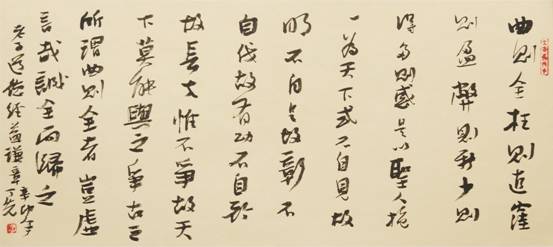 曲則全枉則直窪
則盈弊則新少則
得多則惑是以聖人抱
一為天下式不自見故
明不自是故彰不
自伐故有功不自矜
故長夫惟不爭故天
下莫能與之爭古之
所謂曲則全者豈虛
言哉誠全而歸之
老子道德經益謙章
辛卯年